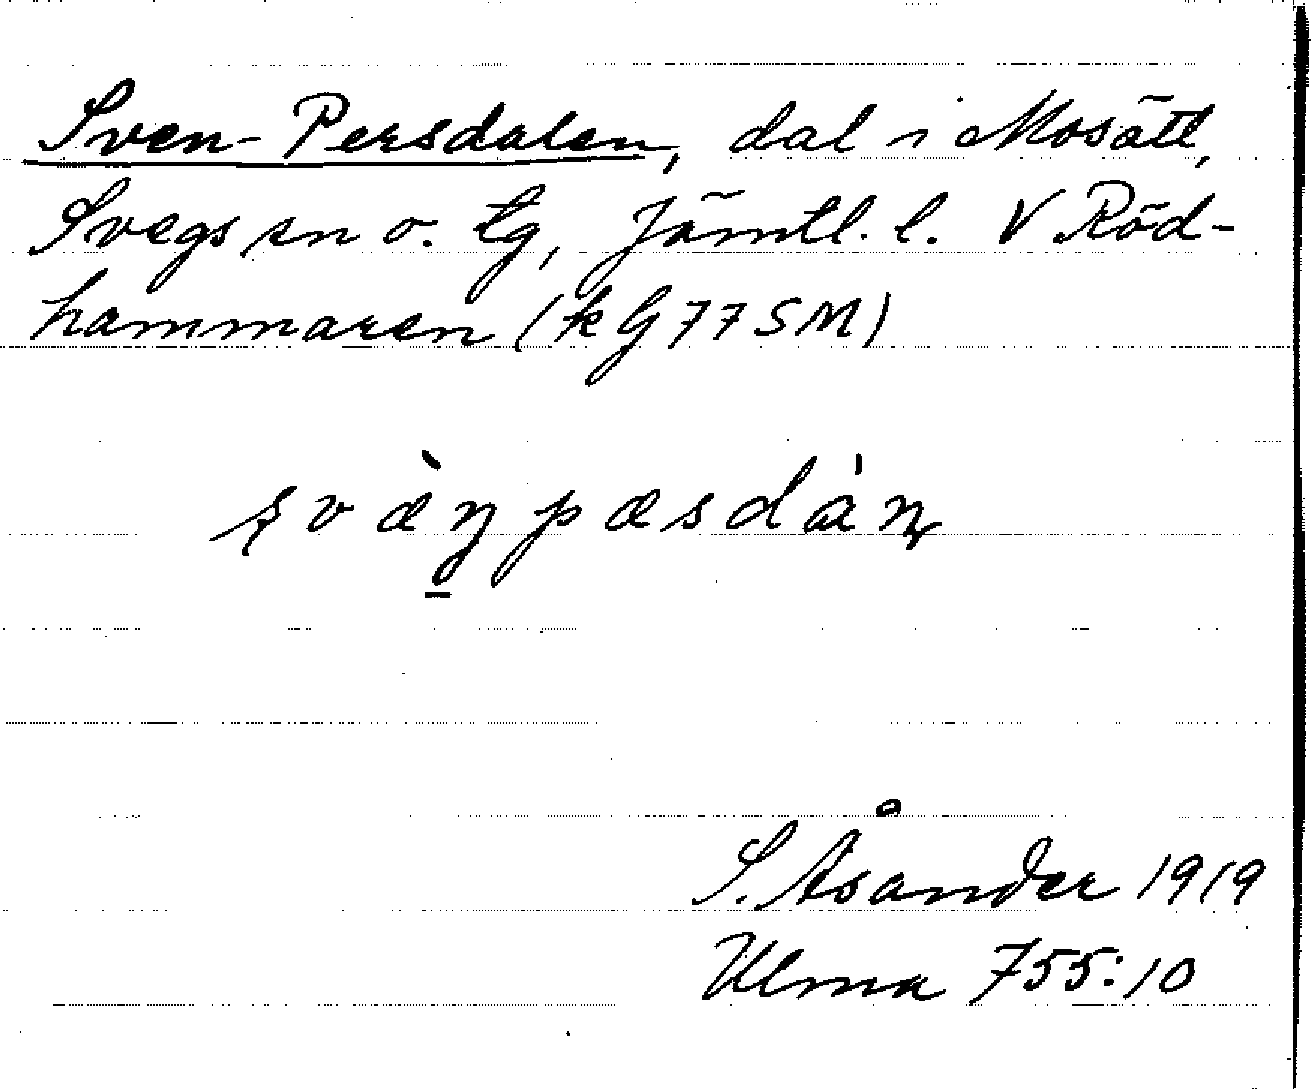 Sven-Persdalen, dal i Mosätt,
Svegs sn o. tg, Jämtl. l. V Röd-
hammaren (k G 77 SM)
svæ̀ŋpæsdáɳ
S. Åsander 1919
Ulma 755:10